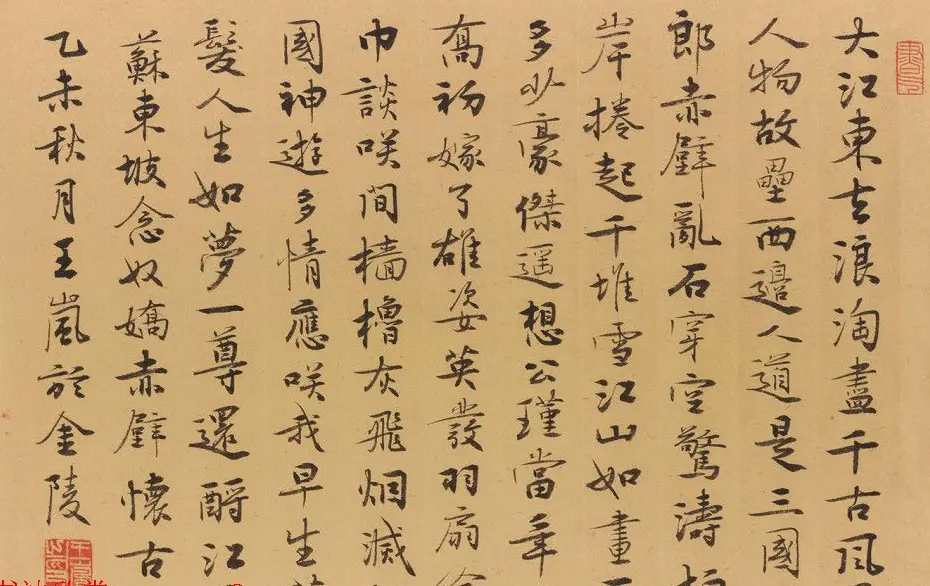 大江東去浪淘盡千古風
人物故壘西邊人道是三國
郎赤壁亂石穿空驚濤拍
岸捲起千堆雪江山如畫一
多少豪傑遙想公瑾當年
喬初嫁了雄姿英發羽扇綸
巾談咲間檣櫓灰飛烟滅
國神遊多情應咲我早生華
髮人生如夢一尊還酹江
蘇東坡念奴嬌赤壁懷古
乙未秋月王嵐於金陵